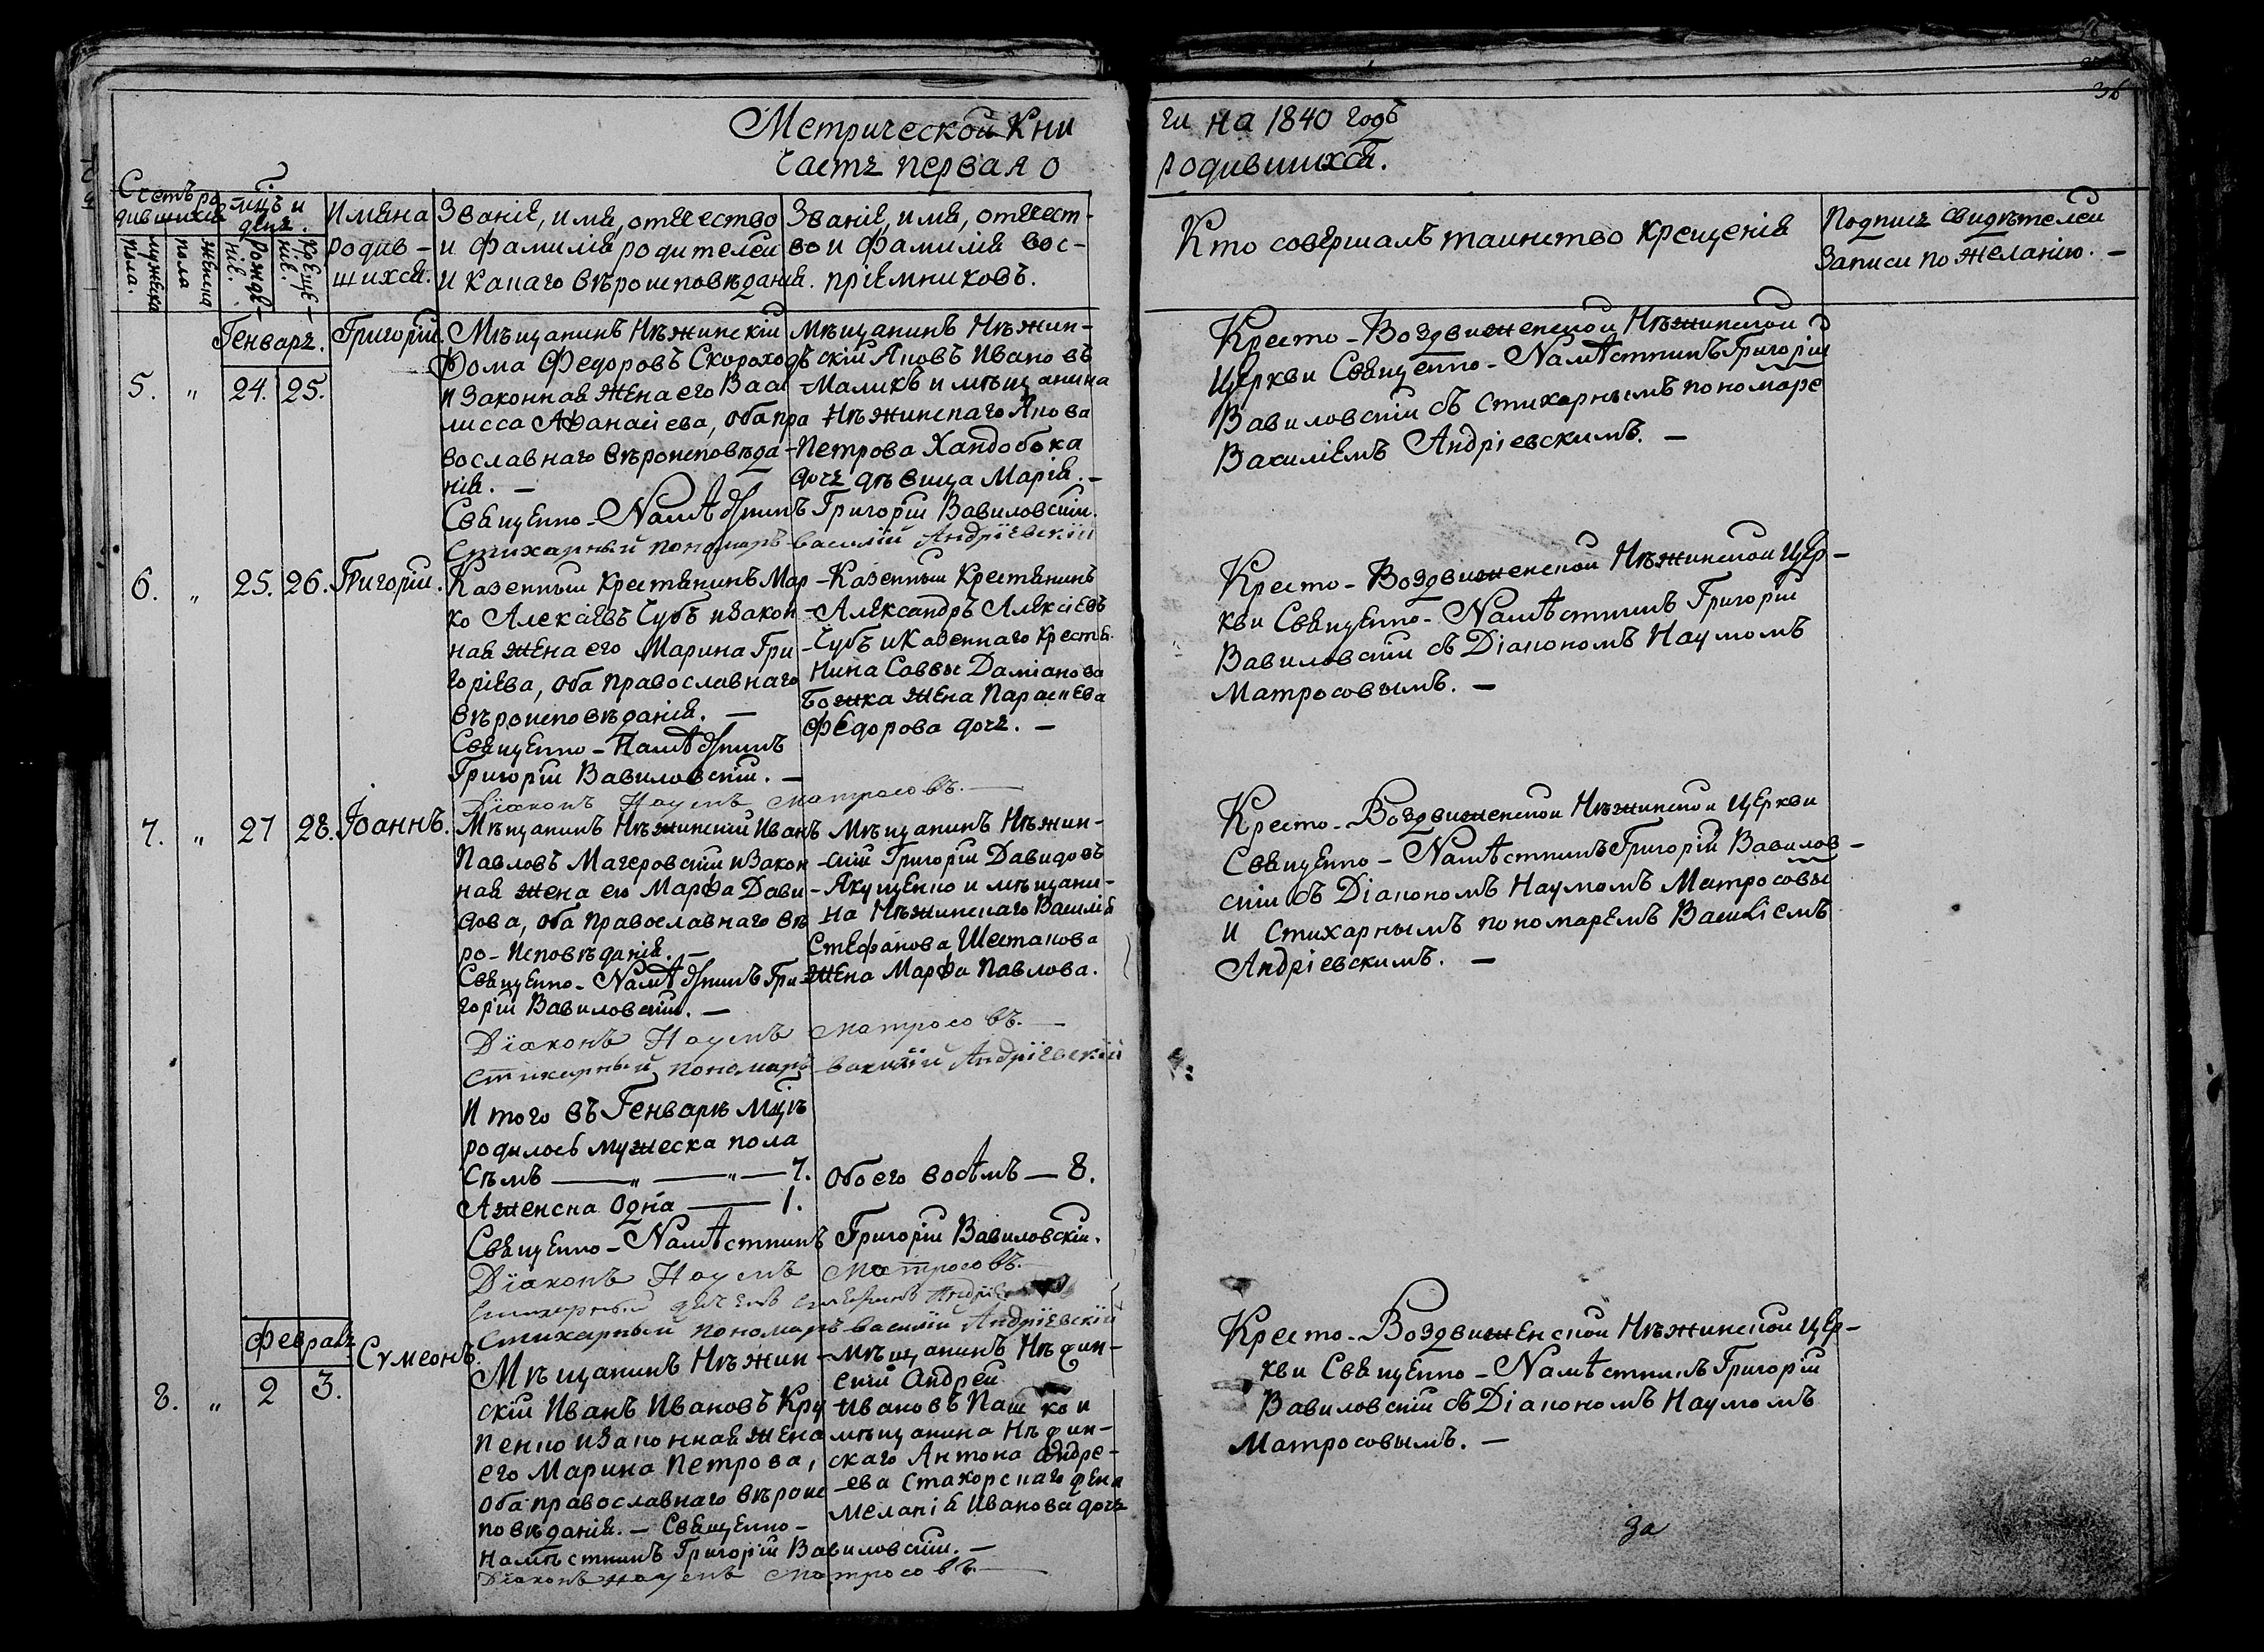 36
Метрической Кни
ги на 1840 годъ
Часть первая о
родившихся.
Счетъ ро
дившихся
мцъ и
день.
мужеска
пола.
женска
пола
Рожде-
нія.
Креще-
нія.
Имяна
родив-
шихся.
Званіе, имя, отечество
и фамилія родителей
и какаго вѣроисповѣданія.
Званіе, имя, отечест-
во и фамилія вос-
пріемниковъ.
Кто совершалъ таинство крещенія
Подпись свидѣтелей
Записи по желанію. —
Генварь.
5. „ 24. 25.
Григорій.
Мѣщанинъ Нѣжинскій
Фома Федоровъ Скороходъ
и Законная Жена его Васи
лисса Афанасіева, оба пра
вославнаго вѣроисповѣда-
нія. —
Мѣщанинъ Нѣжин-
скій Яковъ Ивановъ
Маликъ и мѣщанина
Нѣжинскаго Якова
Петрова Хандобока
дочь дѣвица Марія. —
Священно-Намѣстникъ Григорій Вавиловскій.
Стихарный пономарь Василій Андріевскій
Кресто-Воздвиженской Нѣжинской
Церкви Священно-Намѣстникъ Григорій
Вавиловскій съ Стихарнымъ пономаре
Василіемъ Андріевскимъ. —
6. „ 25. 26. Григорій.
Казенный Крестянинъ Мар
ко Алексіевъ Чубъ и Закон
ная жена его Марина Гри
горіева, оба православнаго
вѣроисповѣданія. —
Священно-Намѣстникъ
Григорій Вавиловскій. —
Діаконъ Наумъ Матросовъ. —
Казенный Крестянинъ
Александръ Алексіевъ
Чубъ и Казеннаго Крестя
нина Саввы Даміанова
Божка жена Параскева
Федорова дочь. —
Кресто-Воздвиженской Нѣжинской Цер-
кви Священно-Намѣстникъ Григорій
Вавиловскій съ Діакономъ Наумомъ
Матросовымъ. —
7. „ 27 28. Іоаннъ.
Мѣщанинъ Нѣжинскій Иванъ
Павловъ Магеровскій и Закон
ная жена его Марфа Дави
дова, оба православнаго вѣ
ро-исповѣданія. —
Священно-Намѣстникъ Гри
горій Вавиловскій. —
Діаконъ Наумъ Матросовъ. —
Стихарный пономарь Василій Андріевскій
Мѣщанинъ Нѣжин-
скій Григорій Давидовъ
Якущенко и мѣщани-
на Нѣжинскаго Василія
Стефанова Шестакова
Жена Марфа Павлова.
Кресто-Воздвиженской Нѣжинской Церкви
Священно-Намѣстникъ Григорій Вавилов-
скій съ Діакономъ Наумомъ Матросовы
и Стихарнымъ пономаремъ Василіемъ
Андріевскимъ. —
И того въ Генварѣ мцѣ
родилось мужеска пола
Сѣмъ — „ — „ — 7.
А женска одна — 1.
Обоего восѣмъ — 8.
Священно-Намѣстникъ Григорій Вавиловскій.
Діаконъ Наумъ Матросовъ. —
Стихарный
Стихарный пономарь Василій Андріевскій
Февраль
8. „ 2 3.
Сумеонъ.
Мѣщанинъ Нѣжин-
скій Иванъ Ивановъ Кру
пенко и Законная Жена
его Марина Петрова,
Оба православнаго вѣроис
повѣданія. — Священно-
Намѣстникъ Григорій Вавиловскій. —
Діаконъ Наумъ Матросовъ. —
Мѣщанинъ Нѣжин-
скій Андрей
Ивановъ Пашко и
мѣщанина Нѣжин-
скаго Антона Андре-
ева Стахорскаго жена
Меланія Иванова дочь
Кресто-Воздвиженской Нѣжинской Цер-
кви Священно-Намѣстникъ Григорій
Вавиловскій съ Діакономъ Наумомъ
Матросовымъ. —
За